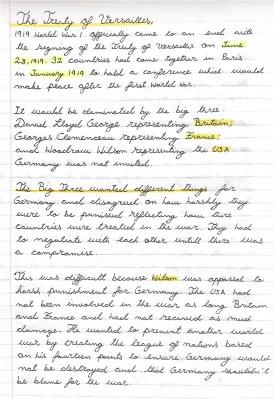 The Treaty of Versailles,
1919 World War 1 officially came to an end with
the signing of the Treaty of Versailles on June
28, 1919. 32 countries had come together in Paris
in January 1919 to hold a conference which would
make peace after the first World War.
It would be dominated by the big three:
Daniel Lloyd George representing Britain;
Georges Clemenceau representing France;
and Woodrow Wilson representing the USA
Germany was not invited.
The Big Three wanted different things for
Germany and disagreed on how harshly they
were to be punished reflecting how their
countries were treated in the war. They had
to negotiate with each other until there was
a compromise.
This was difficult because Wilson was opposed to
harsh punishment for Germany. The USA had
not been involved in the war as long Britain
and France and had not received as much
damage. He wanted to prevent another world
war by creating the league of nations based
on his fourteen points to ensure Germany would
not be destroyed and that Germany shouldn't
be blame for the war.